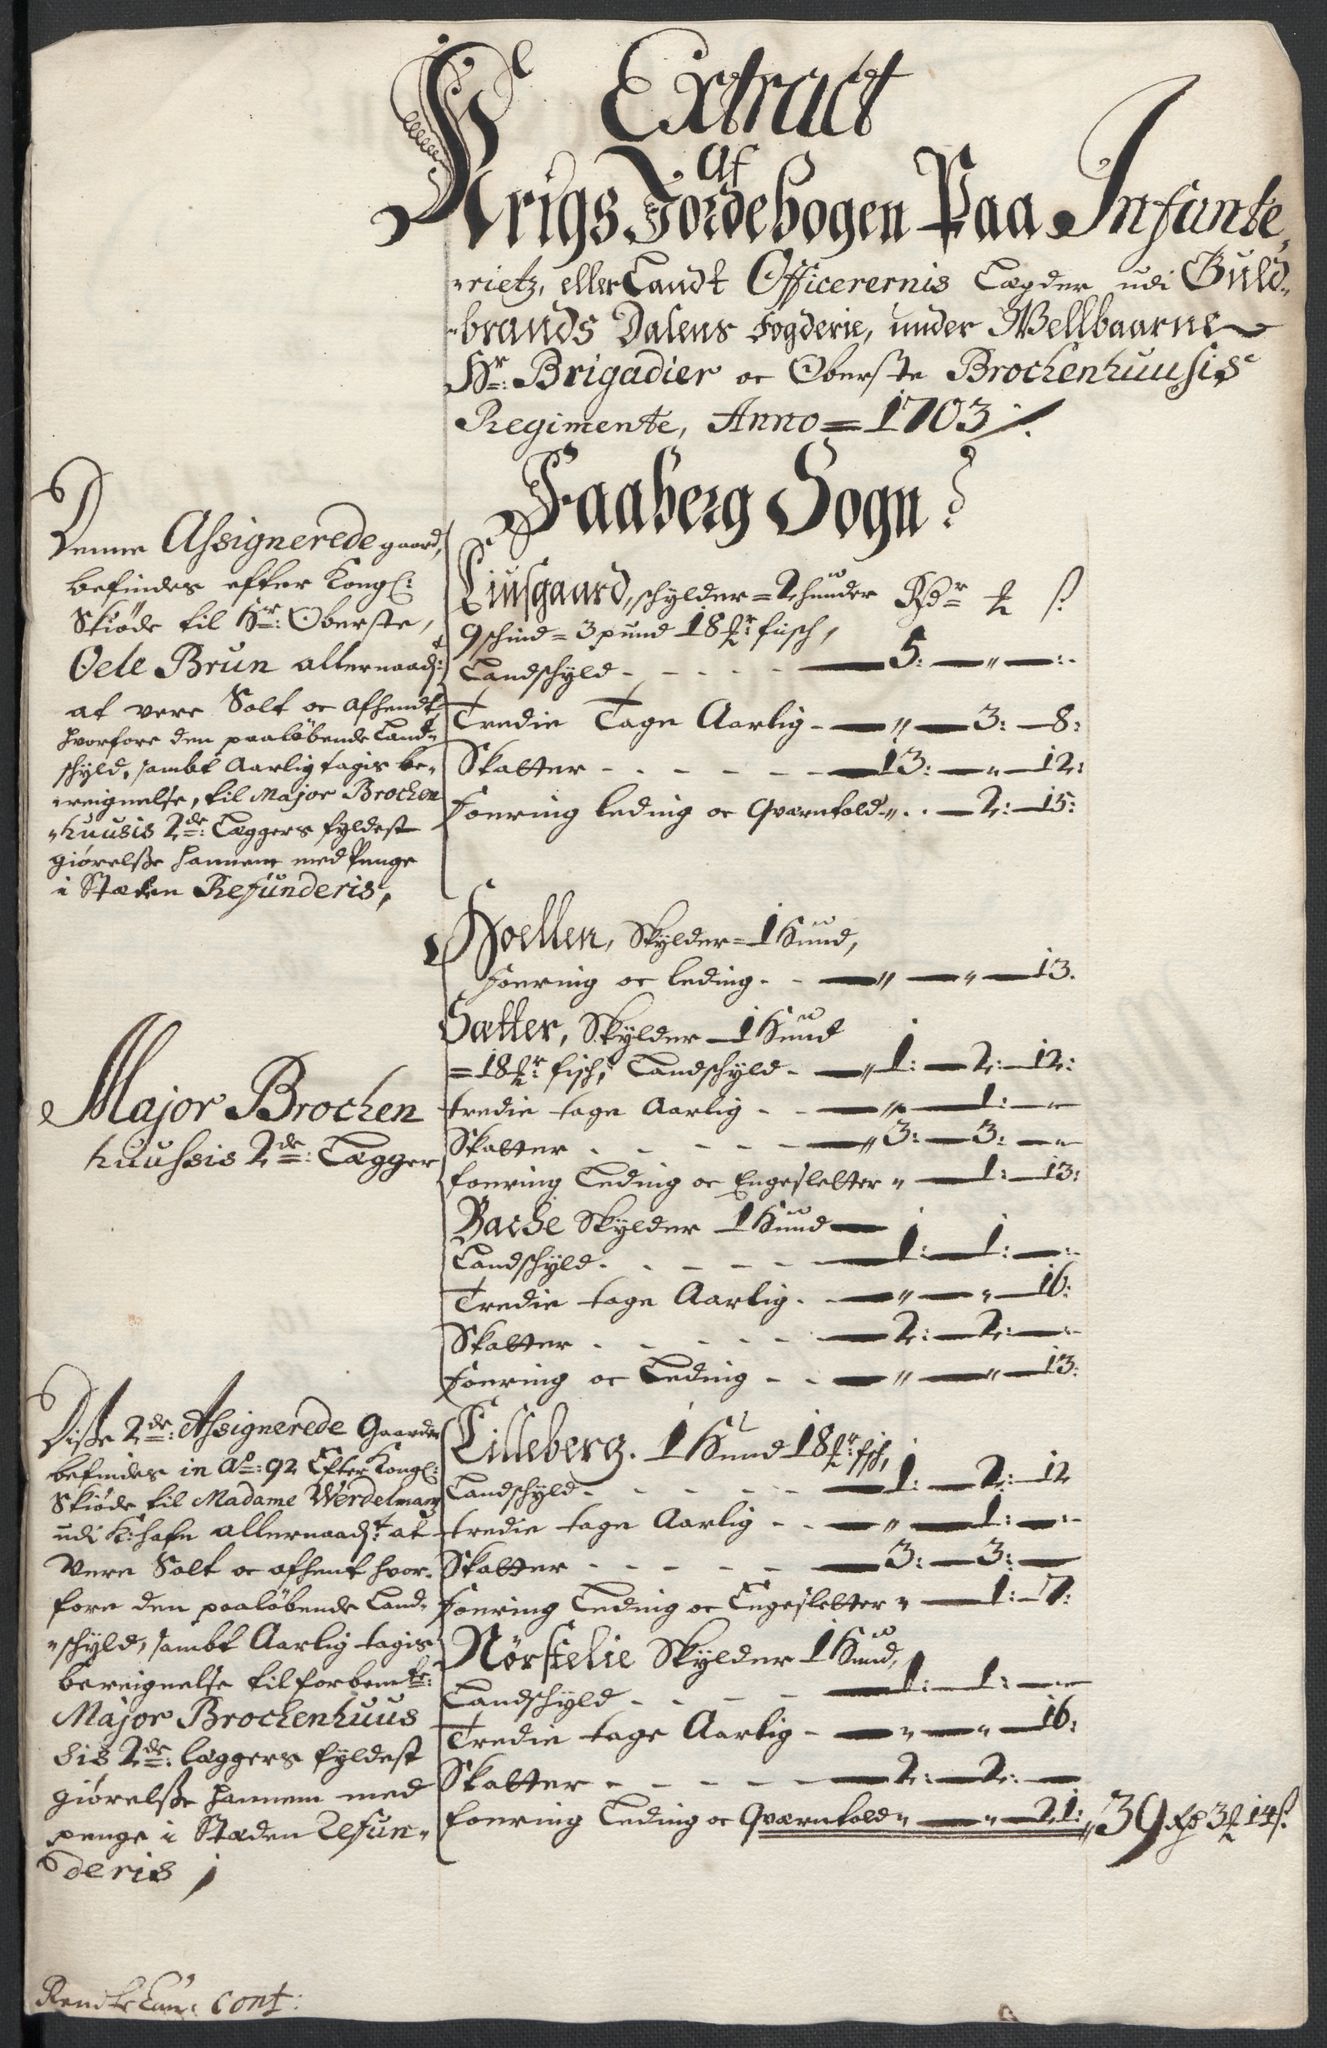 Extract
Af
Krigs Jordebogen Paa Infante,
rietz, eller Landt Officerernis Lægder udi Guld-
brands Dalens Fogderie, under Wellbaarne
Hr: Brigadier oc Oberste Brochenhuusis
Regimente, Anno = 1703 /.
Faaberg Sogn
Denne Assignerede gaard,
befindes efter Kongl:
Skiøde til Hr: Oberste,
Oele Brun allernaadt:
at vere Solt oc Afhendt
hvorfore den paaløbende Land-
schyld, sambt Aarlig tagis be-
reignelse, til Major Brochen
huusis 2de: Læggers fyldest
giørelsse hannem med Penge
i Stæden Refunderis,
Liusgaard, schylder = 2 huuder Rdr ort s.
9 schind = 3 pund 18 mr fisch,
Landschyld - - - - 5: — " — :-
Tredie Tage Aarlig - — " — 3: — 8:
Skatter - - - - - 13: — " — 12:
Foering leding oc Qværntold - " . . — 2: — 15:
Hoellen, Skylder = 1 Huud,
foering oc leding - - — " — " — 13.
Major Brochen
huussis 2de: Lægger
Sætter, Skylder — 1 Huud
= 18 mr: fisch, Landschyld - — " 1: — 2: — 12:
tredie tage Aarlig - - — " — 1: — "
Skatter - - - - — " 3: — 3: — "
foering Leding oc Engesletter " — 1: — 13:
Bache Skylder 1 Huud —
Landschyld - - - - - 1: — 1: — :-
Tredie tage Aarlig - - — " — " — 16:
Skatter - - - - - 2: — 2: — :-
Foering oc Leding - - — " — " — 13:
Disse 2de: Assignerede Gaarder
befindes in Ao: 92 Efter Kongl:
Skiøde til Madame Werdelmanz
udi K:hafn allernaadt: at
Vere Solt oc afhent hvor-
fore den paaløbende Land-
schyld, sambt Aarlig tagis
bereignelse til forbemte:
Major Brochenhuus
sis 2de: læggers fyldest
giørelsse hannem med
penge i Stæden Refun-
deris /
Lilleberg. 1 Huud 18 mr: fisch,
Landschyld - - - - - 1: — 2: — 12
tredie tage Aarlig - - — " — 1: — :-
Skatter - - - - - 3: — 3: —
Foering Leding oc Engesletter " — 1: — 7:
Nørstelie Skylder 1 Huud,
Landschyld - - - - 1: — 1: — "
Tredie tage Aarlig - — " — " — 16:
Skatter - - - - - 2: — 2: —
foering Leding oc Qværntold " — " — 21: " 39 Rd 3 ort 14 s.
cont: